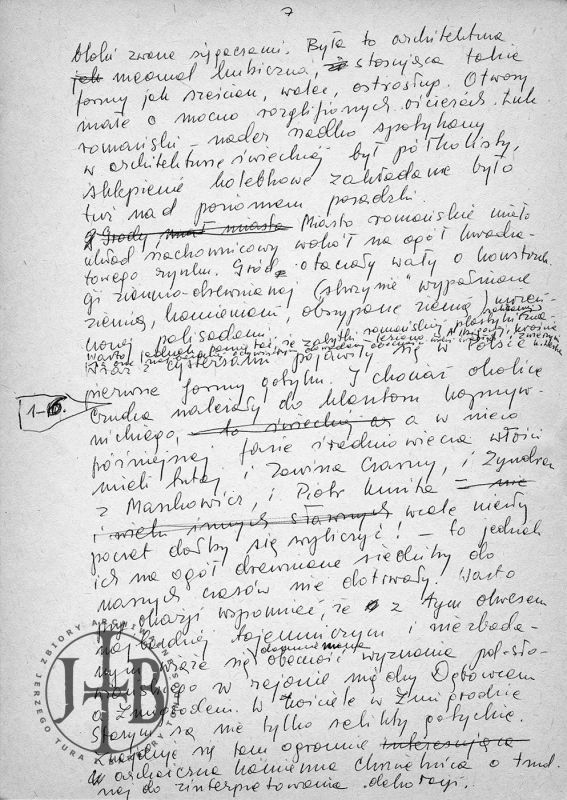 7
bloki zwane sięgaczami. Była to architektura
jak niemal kubiczna, stosująca takie
formy jak sześcian, walec, ostrosłup. Otwory
małe o mocno rozglifionych ościeżach. Łuk
romański – nader rzadko spotykany
w architekturze świeckiej był półkolisty,
sklepienie kolebkowe zakładane było
tuż nad poziomem posadzki.
Grody miast miasta Miasto romańskie miało
układ szachownicowy wokół na ogół kwadra-
towego rynku. Gród otaczały wały o konstruk-
cji ziemno-drewnianej (skrzynie wypełniane
ziemią, kamieniami, obsypane ziemią)
cnonej palisadami.
Warto jednak pamiętać, że zabytki romańskiej
wraz z cystersami pojawiły się w Polsce
pierwsze formy gotyku. I chociaż okolice
1-6.
należały do klasztoru
nickiego, to świeckiej a w nieco
późniejszej fazie średniowiecza włości
mieli tutaj i Zawisza Czarny, i Zyndram
z Maszkowic, i Piotr Kmita – nie
i wielu innych sławnych wcale niezły
poczet dałby się wyliczyć! – to jednak
ich na ogół drewniane siedziby do
naszych czasów nie dotrwały. Warto
przy okazji wspomnieć, że z tym okresem
najbardziej tajemniczym i niezbada-
nym wiąże się domniemana obecność wyznania pol-sło-
wiańskiego w rejonie między Dębowcem
a Żmigrodem. W kościele w Żmigrodzie
Starym są nie tylko relikty gotyckie.
Znajduje się tam ogromnie interesująca
archaiczna kamienna chrzcielnica o trud-
nej do zinterpretowania dekoracji.
ZBIORY ARCHIWALNE
JERZEGO TURA
JTB